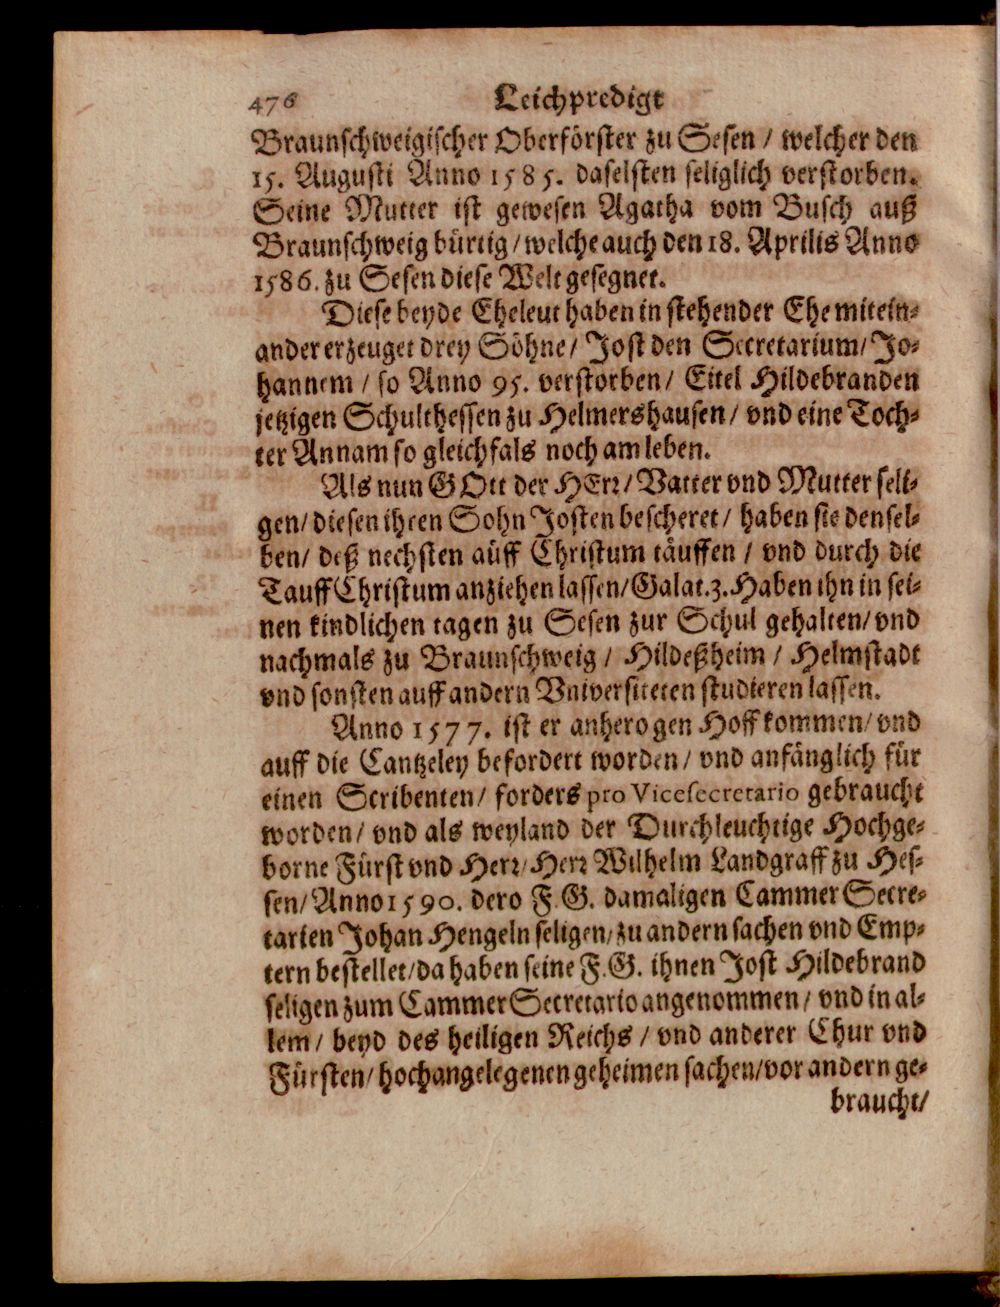 476 Leichpredigt
Braunschweigischer Oberförster zu Sesen / welcher den
15. Augusti Anno 1585. daselsten seliglich verstorben.
Seine Mutter ist gewesen Agatha vom Busch auß
Braunschweig bürtig / welche auch den 18. Aprilis Anno
1586. zu Sesen diese Welt gesegnet.
Diese beyde Eheleut haben in stehender Ehe mitein-
ander erzeuget drey Söhne / Jost den Secretarium / Jo-
hannem / so Anno 95. verstorben / Eitel Hildebranden
jetzigen Schulthessen zu Helmershausen / vnd eine Toch-
ter Annam so gleichfals noch am leben.
Als nun GOtt der HErr / Vatter vnd Mutter seli-
gen / diesen ihren Sohn Josten bescheret / haben sie densel-
ben / deß nechsten auff Christum täuffen / vnd durch die
Tauff Christum anziehen lassen / Galat. 3. Haben ihn in sei-
nen kindlichen tagen zu Sesen zur Schul gehalten / vnd
nachmals zu Braunschweig / Hildeßheim / Helmstadt
vnd sonsten auff andern Vniversiteten studieren lassen.
Anno 1577. ist er anhero gen Hoff kommen / vnd
auff die Cantzeley befordert worden / vnd anfänglich für
einen Scribenten / forders pro Vicesecretario gebraucht
worden / vnd als weyland der Durchleuchtige Hochge-
borne Fürst vnd Herr / Herr Wilhelm Landgraff zu Hes-
sen / Anno 1590. dero F. G. damaligen Cammer Secre-
tarien Johan Hengeln seligen / zu andern sachen vnd Emp-
tern bestellet / da haben seine F. G. ihnen Jost Hildebrand
seligen zum Cammer Secretario angenommen / vnd in al-
lem / beyd des heiligen Reichs / vnd anderer Chur vnd
Fürsten / hochangelegenen geheimen sachen / vor andern ge-
braucht /